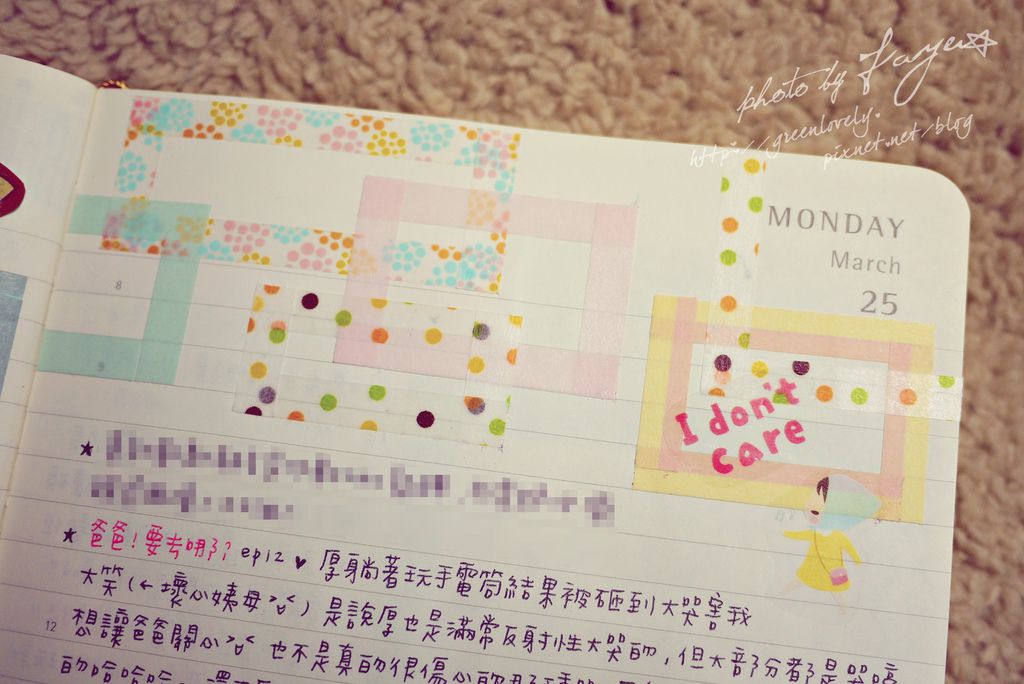 photo by Faye
http://greenlovely.
pixnet.net/blog
MONDAY
March
25
8
9
I don't
care
★ 爸爸!要去哪了? ep12 ♥ 厚躺著玩手電筒結果被砸到大哭害我
大笑(←壞心姨母>v<) 是說厚也是滿常反射性大哭的,但大部分都是哭音
12
想讓爸爸關心>v< 也不是真的很傷心的那種
的哈哈哈